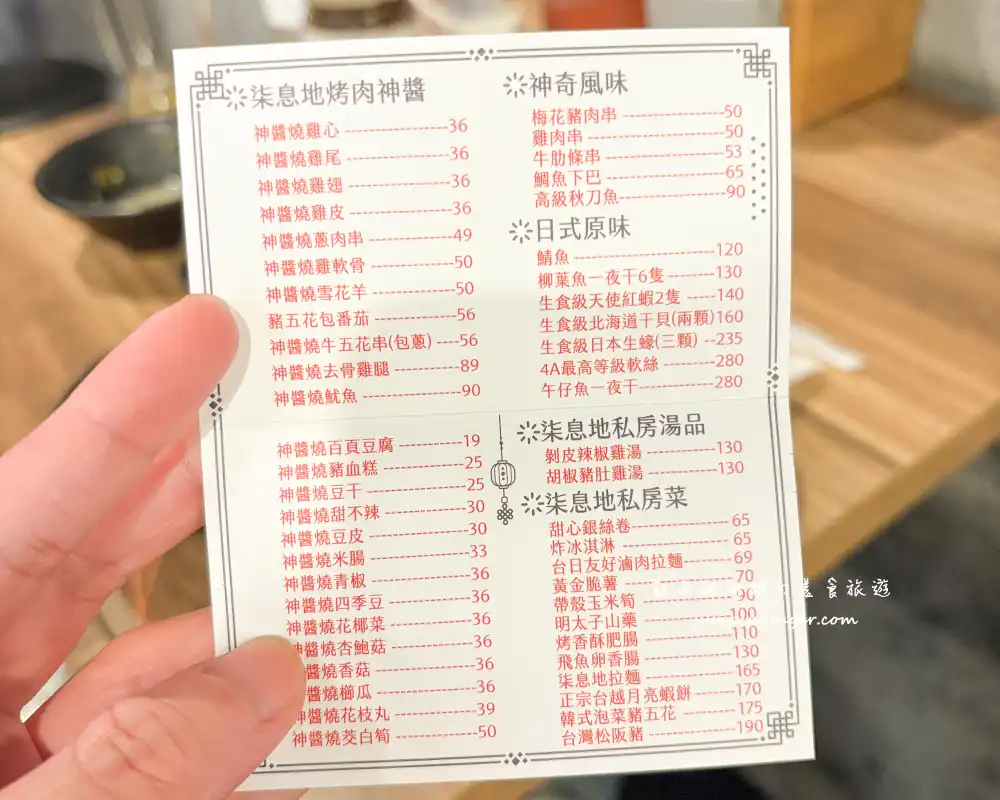 柒息地烤肉神醬
神醬燒雞心 36
神醬燒雞尾 36
神醬燒雞翅 36
神醬燒雞皮 36
神醬燒蔥肉串 49
神醬燒雞軟骨 50
神醬燒雪花羊 50
豬五花包番茄 56
神醬燒牛五花串(包蔥) 56
神醬燒去骨雞腿 89
神醬燒魷魚 90
神醬燒百頁豆腐 19
神醬燒豬血糕 25
神醬燒豆干 25
神醬燒甜不辣 30
神醬燒豆皮 30
神醬燒米腸 33
神醬燒青椒 36
神醬燒四季豆 36
神醬燒花椰菜 36
醬燒杏鮑菇 36
醬燒香菇 36
醬燒櫛瓜 36
醬燒花枝丸 39
神醬燒茭白筍 50
神奇風味
梅花豬肉串 50
雞肉串 50
牛肋條串 53
鯛魚下巴 65
高級秋刀魚 90
日式原味
鯖魚 120
柳葉魚一夜干6隻 130
生食級天使紅蝦2隻 140
生食級北海道干貝(兩顆) 160
生食級日本生蠔(三顆) 235
4A最高等級軟絲 280
午仔魚一夜干 280
柒息地私房湯品
剝皮辣椒雞湯 130
胡椒豬肚雞湯 130
柒息地私房菜
甜心銀絲卷 65
炸冰淇淋 65
台日友好滷肉拉麵 69
黃金脆薯 70
帶殼玉米筍 90
明太子山藥 100
烤香酥肥腸 110
飛魚卵香腸 130
柒息地拉麵 165
正宗台越月亮蝦餅 170
韓式泡菜豬五花 175
台灣松阪豬 190
食旅遊
.com